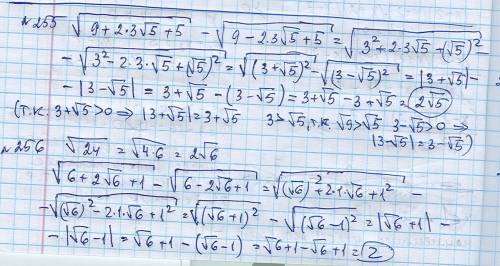 №255 √(9+2·3√5+5) - √(9-2·3√5+5) = √(3²+2·3·√5+(√5)²) -
- √(3²-2·3·√5+(√5)²) = √((3+√5)²) - √((3-√5)²) = |3+√5| -
- |3-√5| = 3+√5 - (3-√5) = 3+√5 - 3+√5 = 2√5
(т.к. 3+√5>0 ⇒ |3+√5|=3+√5 3>√5, т.к. √9>√5 3-√5>0 ⇒
|3-√5|=3-√5)
№256 √24 = √4·6 = 2√6
√(6+2√6+1) - √(6-2√6+1) = √((√6)²+2·1·√6+1²) -
- √((√6)²-2·1·√6+1²) = √((√6+1)²) - √((√6-1)²) = |√6+1| -
- |√6-1| = √6+1 - (√6-1) = √6+1-√6+1 = 2